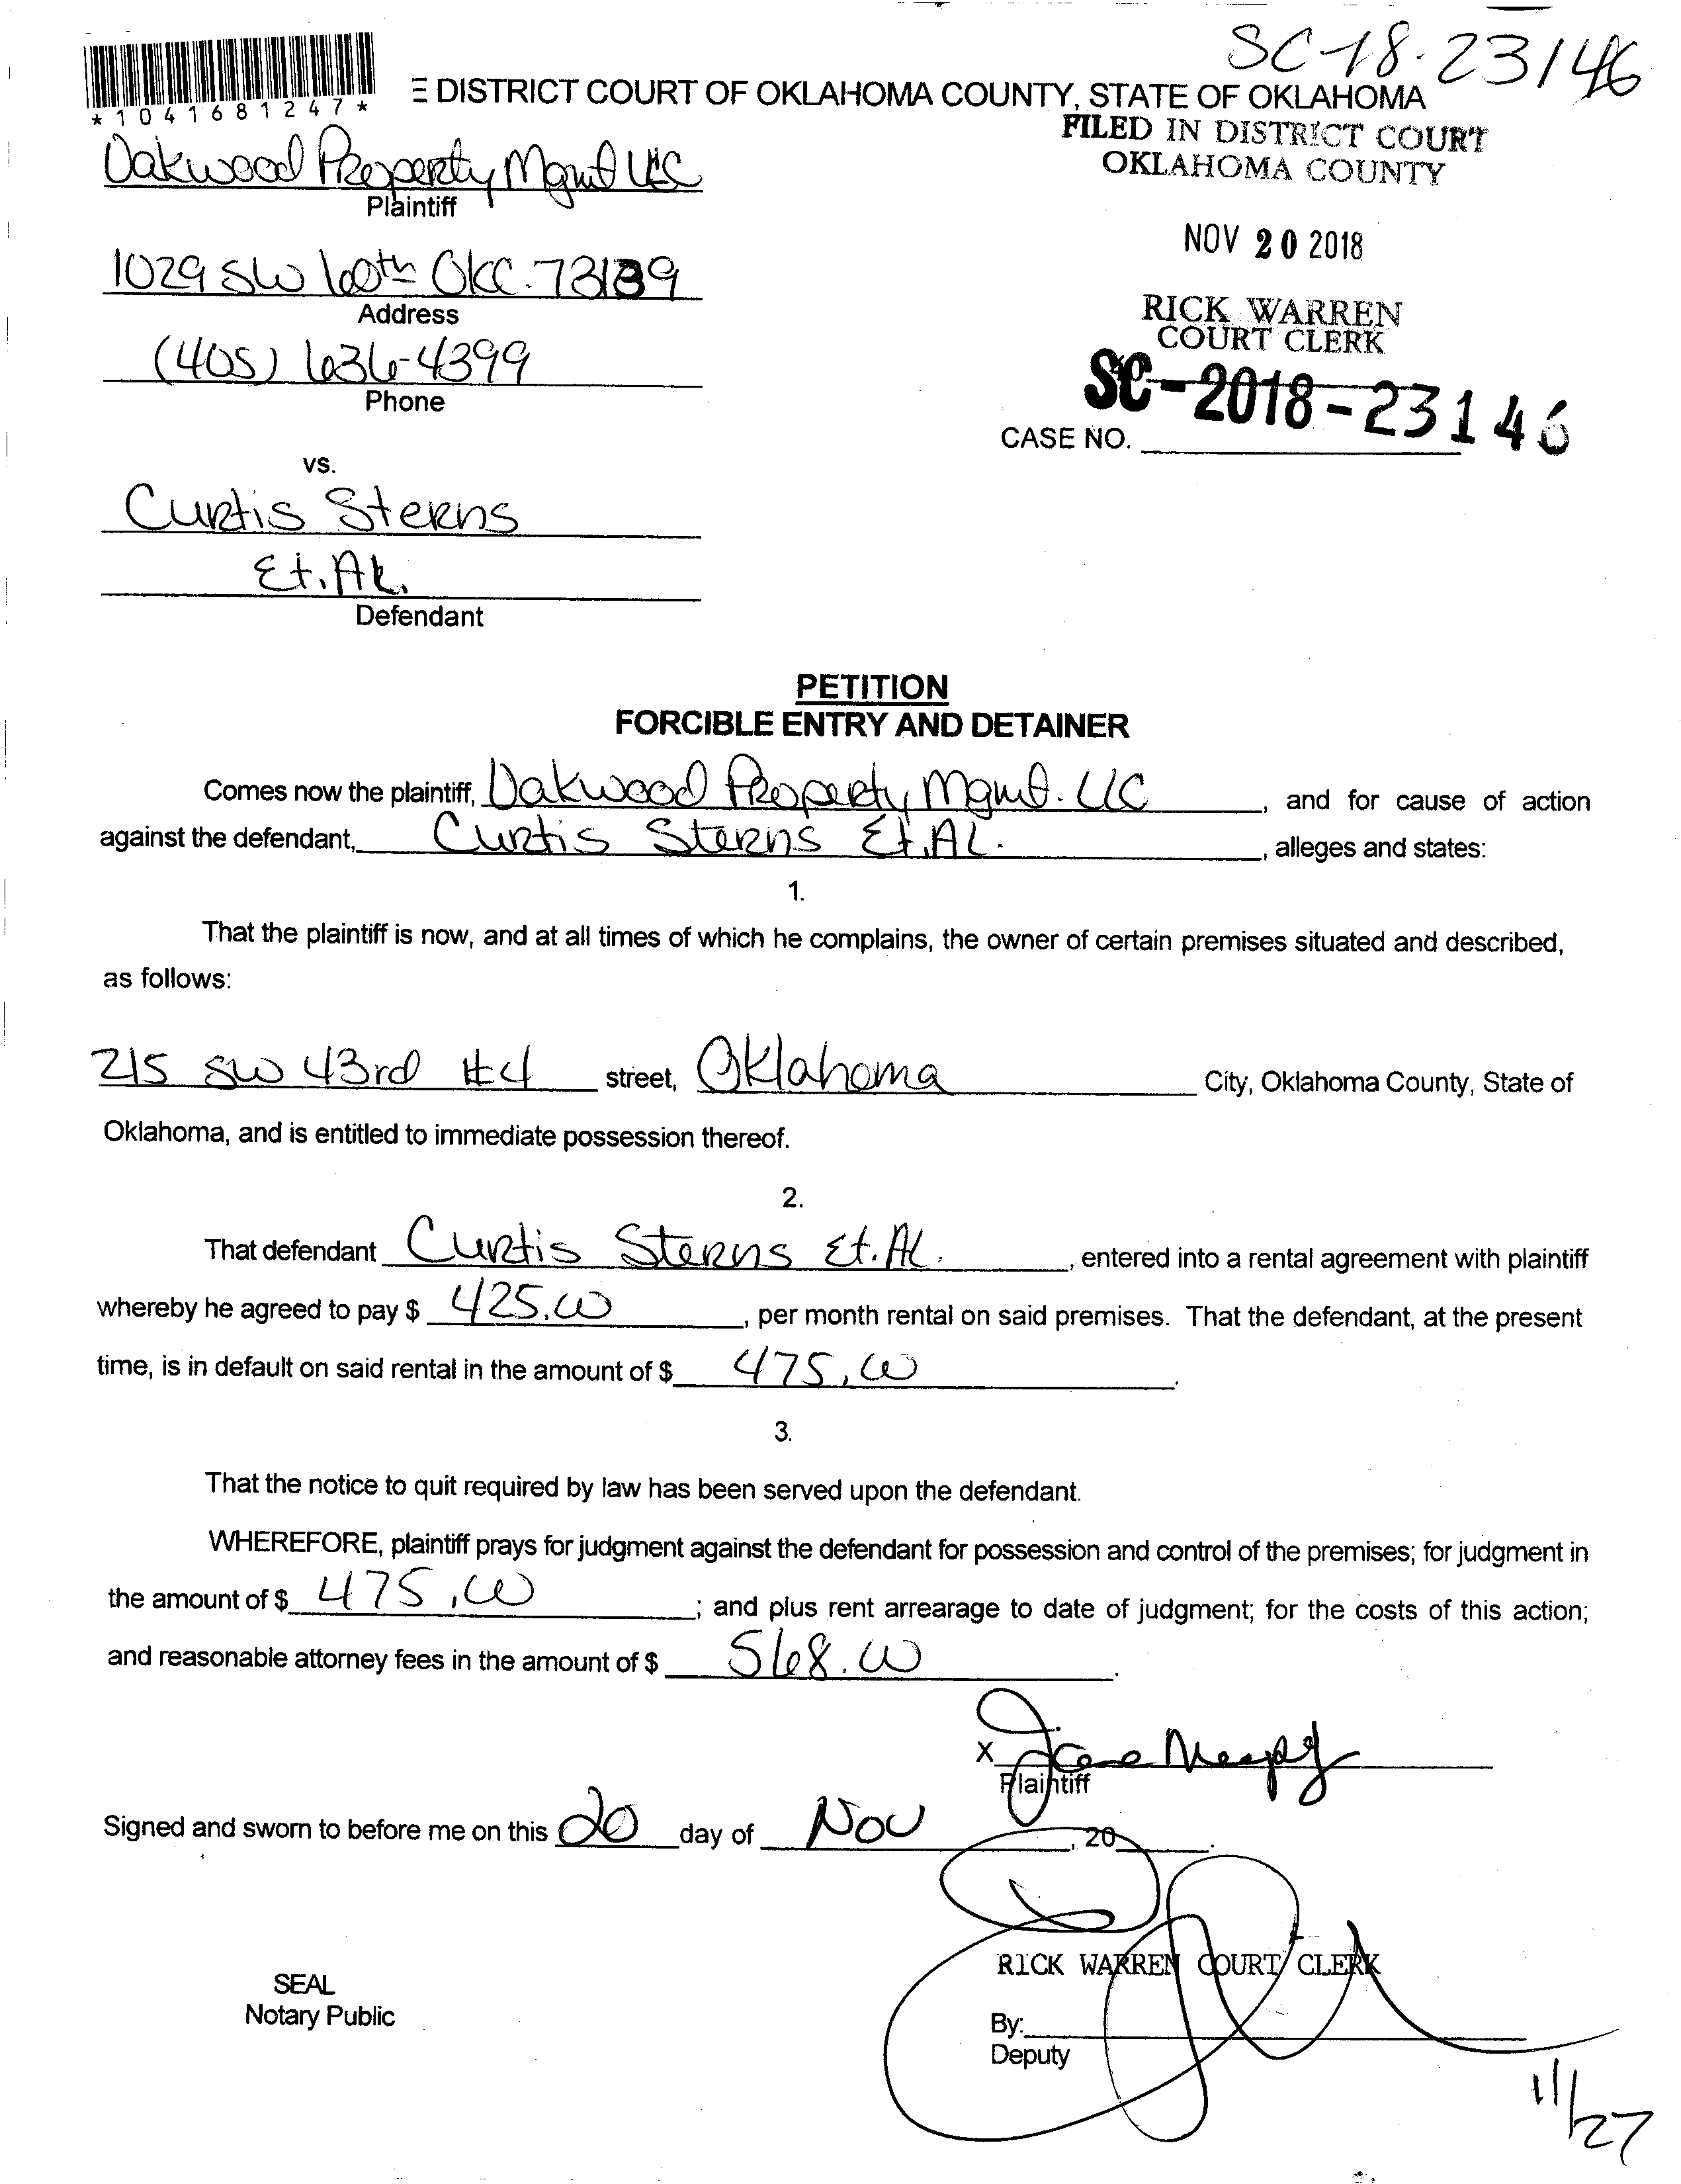 SC-18-23146
*1041681247*
E DISTRICT COURT OF OKLAHOMA COUNTY, STATE OF OKLAHOMA
FILED IN DISTRICT COURT
OKLAHOMA COUNTY
Oakwood Property Mgmt LLC
Plaintiff
NOV 20 2018
1029 SW 60th OKC. 73139
Address
RICK WARREN
COURT CLERK
(405) 636-4399
Phone
SC-2018-23146
CASE NO.
vs.
Curtis Sterns
Et. Al.
Defendant
PETITION
FORCIBLE ENTRY AND DETAINER
Comes now the plaintiff, Oakwood Property Mgmt. LLC, and for cause of action
against the defendant, Curtis Sterns Et. AL., alleges and states:
1.
That the plaintiff is now, and at all times of which he complains, the owner of certain premises situated and described,
as follows:
215 SW 43rd #4 street, Oklahoma City, Oklahoma County, State of
Oklahoma, and is entitled to immediate possession thereof.
2.
That defendant Curtis Sterns Et. AL., entered into a rental agreement with plaintiff
whereby he agreed to pay $ 425.00, per month rental on said premises. That the defendant, at the present
time, is in default on said rental in the amount of $ 475.00.
3.
That the notice to quit required by law has been served upon the defendant.
WHEREFORE, plaintiff prays for judgment against the defendant for possession and control of the premises; for judgment in
the amount of $ 475.00; and plus rent arrearage to date of judgment; for the costs of this action;
and reasonable attorney fees in the amount of $ 568.00.
X
Plaintiff
Signed and sworn to before me on this 20 day of Nov, 20.
RICK WARREN COURT CLERK
SEAL
Notary Public
By:
Deputy
11/27